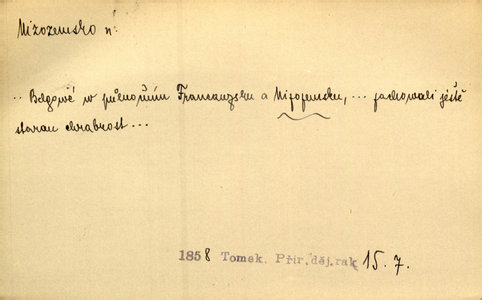 Nizozemsko n.
.. Belgowé w půlnočním Francauzsku a Nizozemsku, ... zachowali ještě
starau chrabrost ...
1858 Tomek. Přír. děj. rak 15. 7.